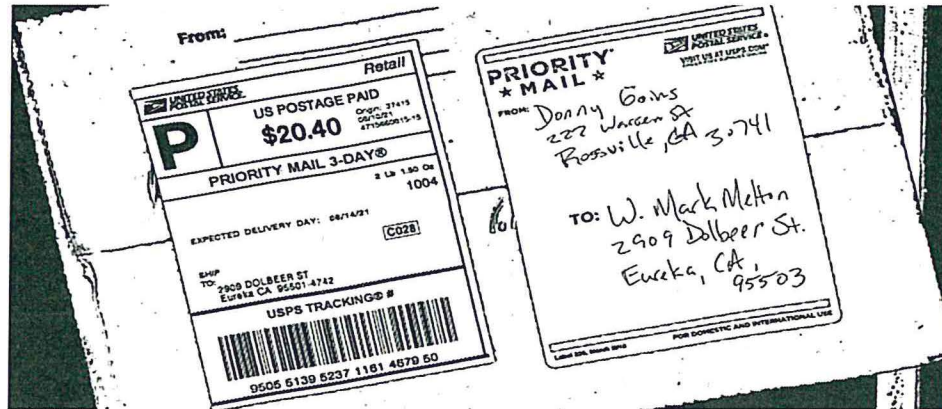 From:
UNITED STATES
POSTAL SERVICE
Retail
P
US POSTAGE PAID
$20.40
Origin: 37415
06/10/21
4715660815-15
PRIORITY MAIL 3-DAY®
2 Lb 1.50 Oz
1004
EXPECTED DELIVERY DAY: 06/14/21
C028
SHIP
TO:
2909 DOLBEER ST
Eureka CA 95501-4742
USPS TRACKING® #
9505 5139 5237 1161 4679 50
UNITED STATES
POSTAL SERVICE®
VISIT US AT USPS.COM®
PRIORITY
★ MAIL ★
FROM: Donny Goins
222 Warren St
Rossville, GA 30741
TO: W. Mark Melton
2909 Dolbeer St.
Eureka, CA,
95503
FOR DOMESTIC AND INTERNATIONAL USE